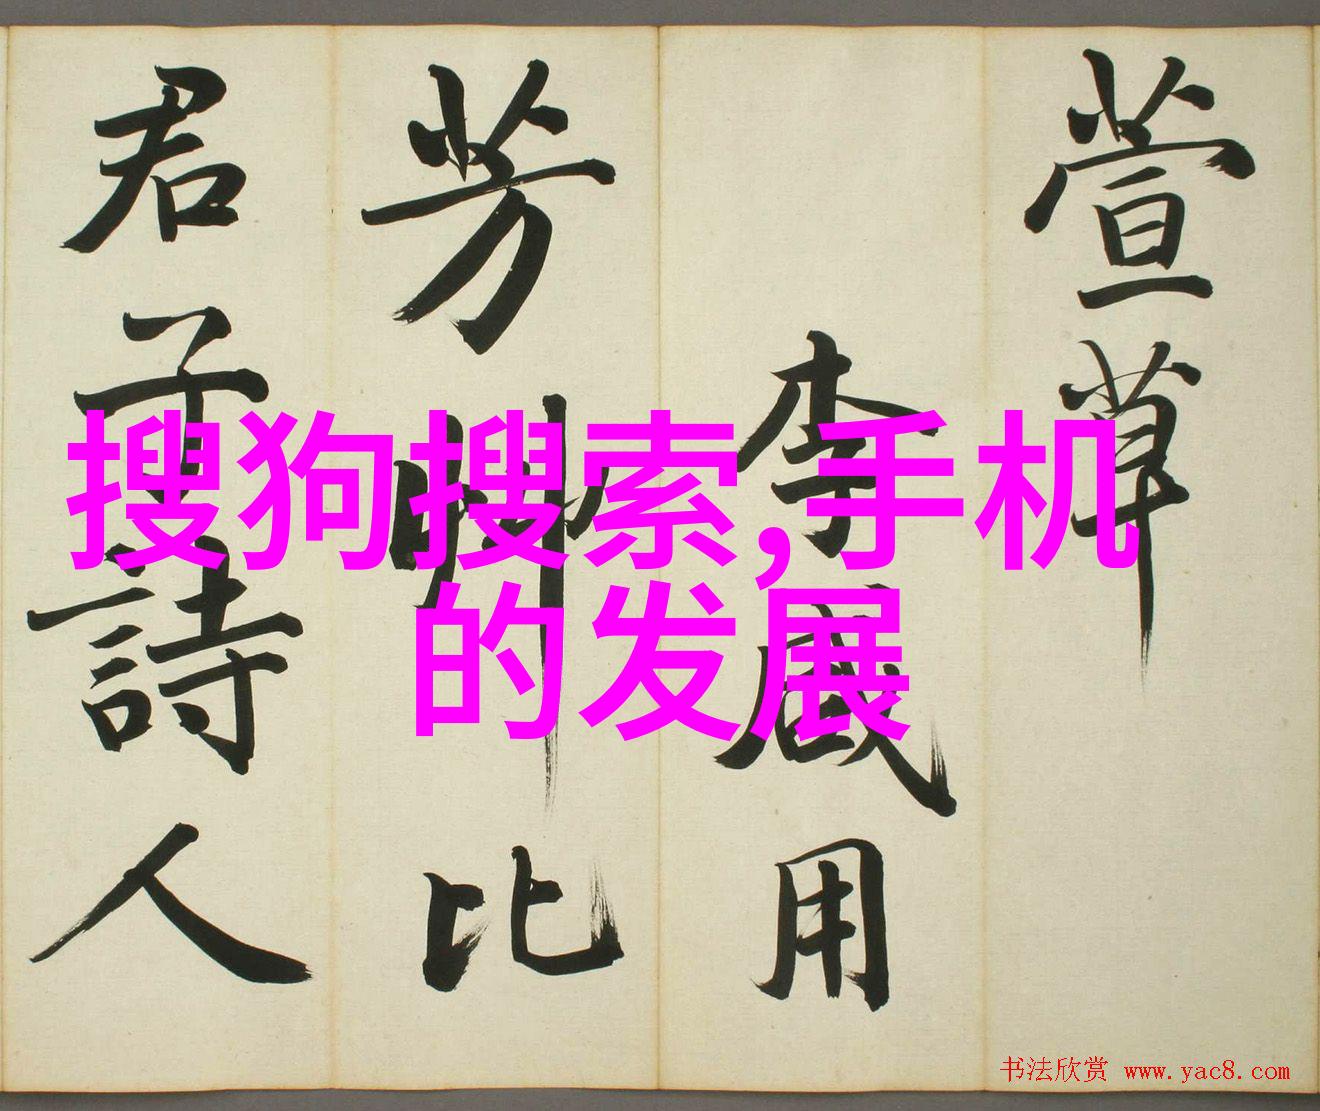 萱草
李咸用
芳艸比
君子詩人
搜狗搜索,手机
的发展
书法欣赏 www.yac8.com